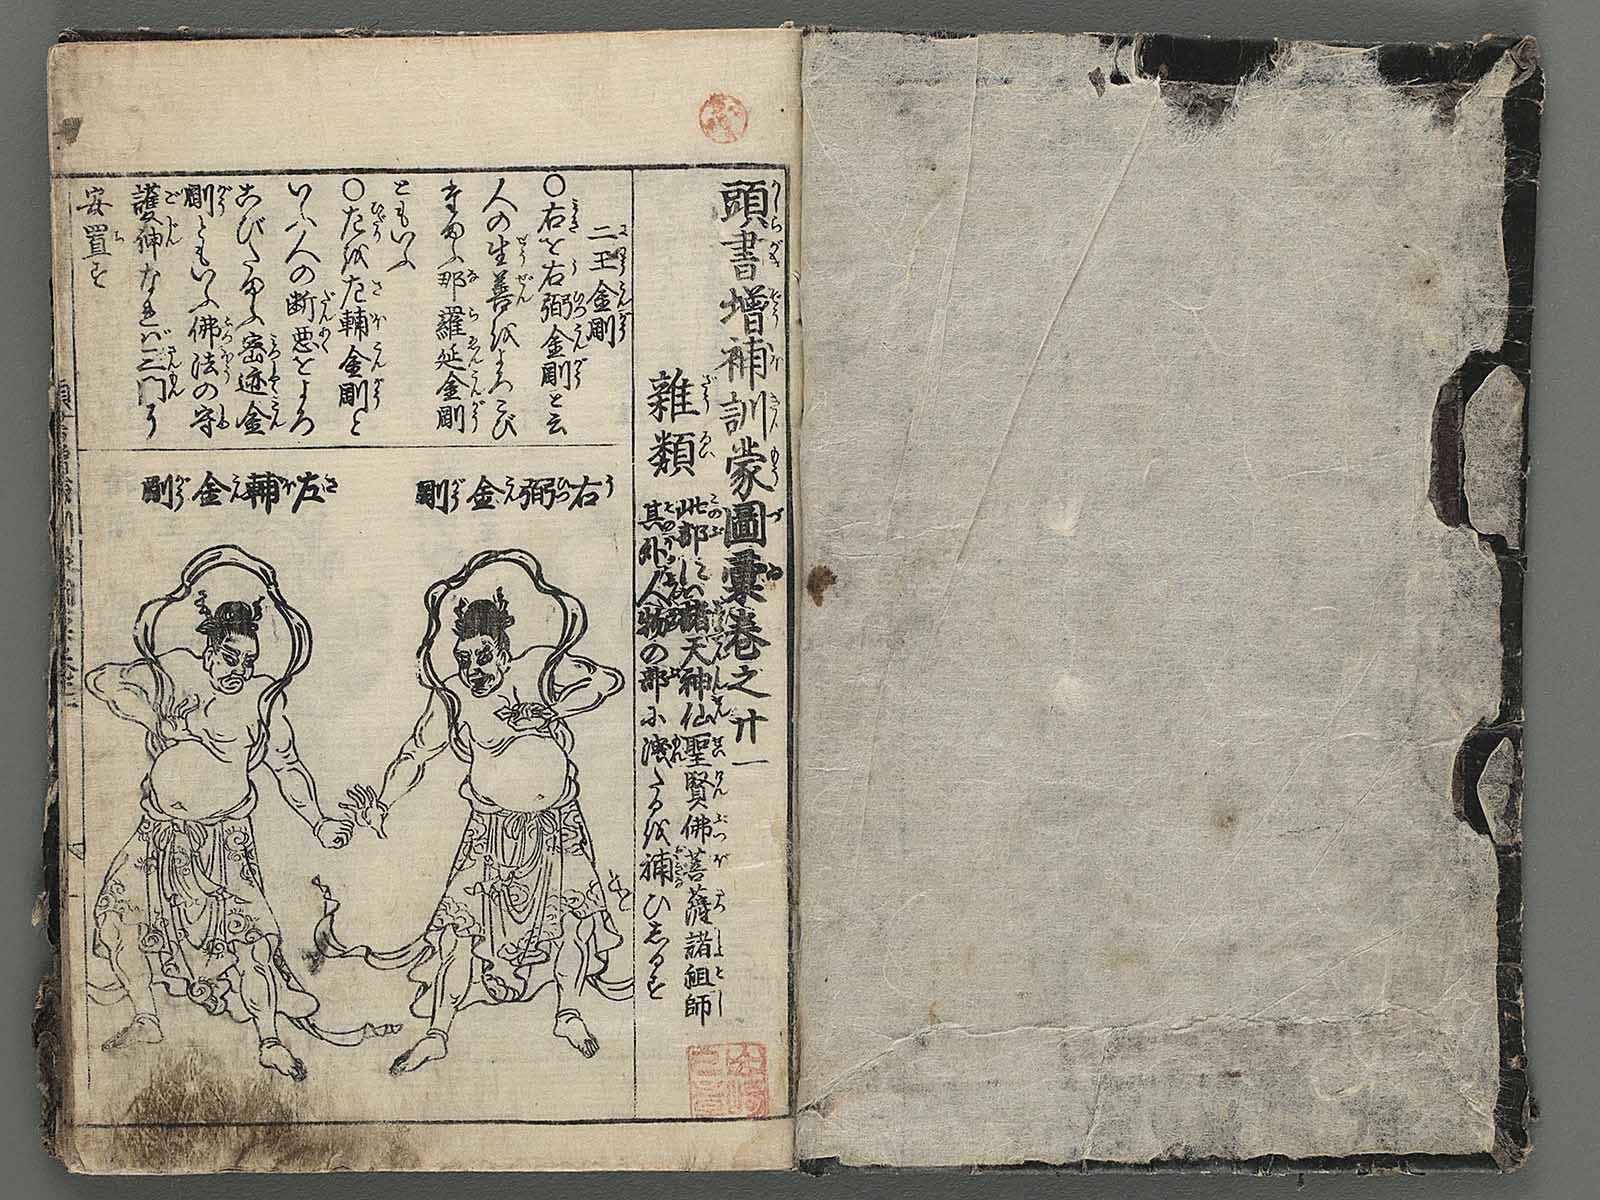 頭書増補訓蒙圖彙巻之廾一
雑類
此部にハ諸天神仙聖賢佛菩薩諸祖師
其外人物の部に洩たるを補ひしるす
二王金剛
○右を右弼金剛と云
人の生善をよろこび
まもる那羅延金剛
ともいふ
○左を左輔金剛と
いふ人の断悪をよろ
こびたまふ密迹金
剛ともいふ佛法の守
護神なれバ三門に
安置す
右弼金剛
左輔金剛